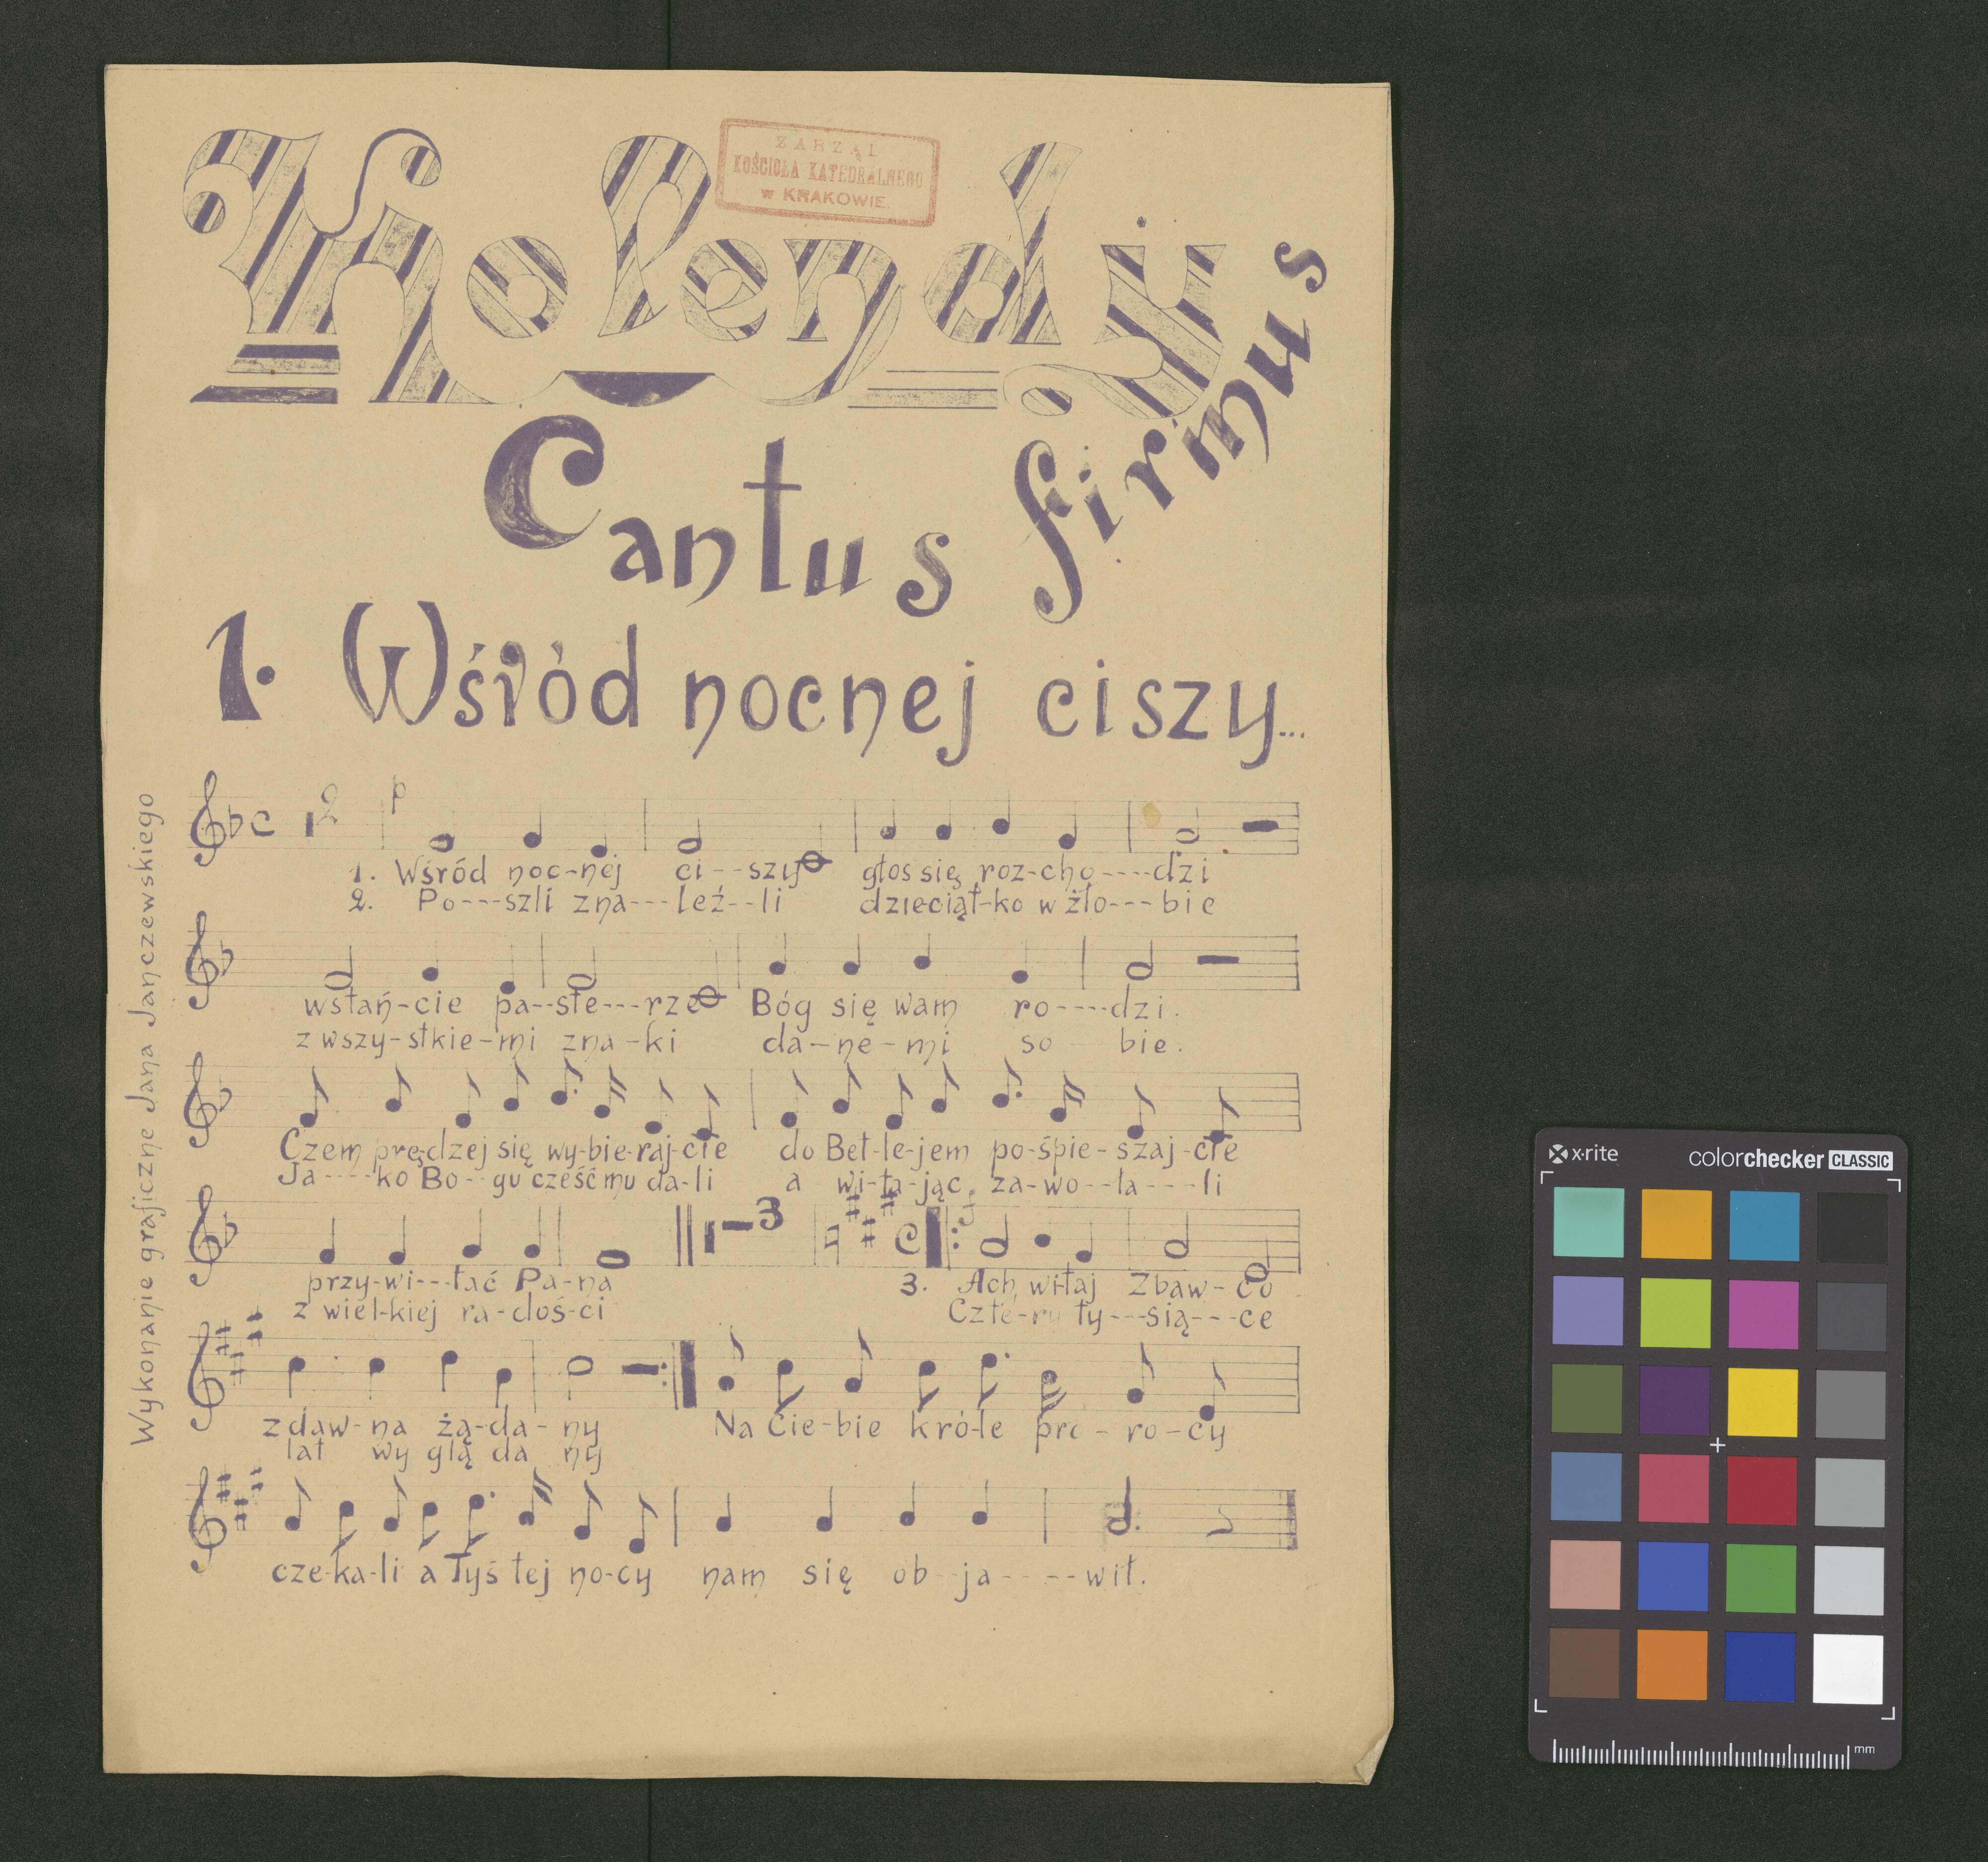 Kolendy
ZARZĄD
KOŚCIOŁA KATEDRALNEGO
w KRAKOWIE.
Cantus firmus
1. Wśród nocnej ciszy...
Wykonanie graficzne Jana Janczewskiego
C 2 p
1. Wśród noc-nej ci---szy głos się roz-cho----dzi
2. Po---szli zna---leź--li dzieciąt-ko w żło---bie
wstań-cie pa--ste---rze Bóg się wam ro----dzi.
z wszy-stkie-mi zna-ki da-ne-mi so bie.
Czem prę-dzej się wy-bie-raj-cie do Bet-le-jem po-śpie-szaj-cie
Ja----ko Bo--gu cześć mu da-li a wi-ta-jąc za-wo--ła---li
3 C f
przy-wi---tać Pa-na 3. Ach, wi-taj Zbaw-co
z wiel-kiej ra-doś-ci Czte-ry ty---sią---ce
z daw-na żą-da-ny Na Cie-bie kró-le pro-ro-cy
lat wy glą da ny
cze-ka-li a Tyś tej no-cy nam się ob--ja----wił.
x-rite colorchecker CLASSIC
mm